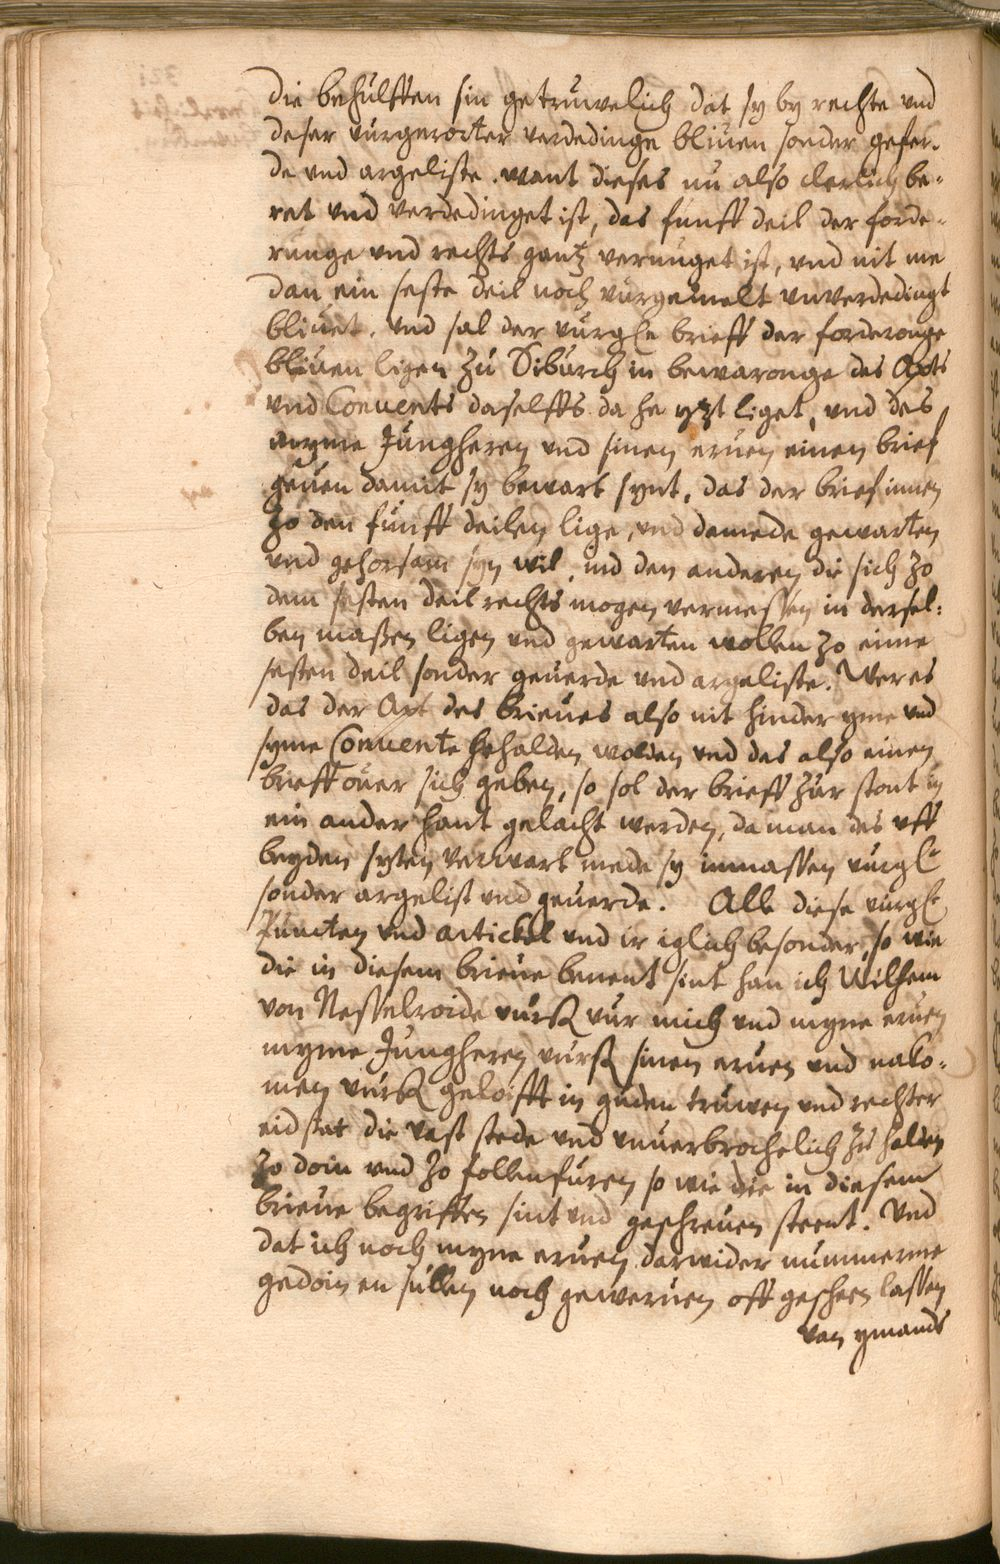 die behülffen sin getruwelich dat sy by rechte vnd
deser vurgerorter verdedinge bliuen sonder gefer-
de vnd argeliste. want dieses nu also clerlich be-
ret vnd verdedinget ist, das funff deil der forde-
runge vnd rechts gantz vernuget ist, vnd nit me
dan ein seste deil noch vurgemelt vnverdedingt
bliuet. vnd sal der vurgle brieff der forderonge
bliuen ligen zu Siburch in bewaronge des Apts
vnd Conuents daselffs da he yzt liget, vnd des
myme Jungheren vnd sinen eruen einen brief
geuen damit sy bewart synt, das der brief innen
zo den funff deilen lige, vnd demede gewarten
vnd gehorsam syn wil, vnd den anderen die sich zo
dem sesten deil rechts mogen vermessen in dersel-
ben maßen ligen vnd gewarten wollen zo eime
sesten deil sonder geuerde vnd argeliste. Wer es
das der Apt des brieues also nit hinder yme vnd
syme Conuente behalden wolden vnd das also einen
brieff ouer sich geben, so sol der brieff zur stont in
ein ander hant gelacht werden, da man des vff
beyden syten verwart mede sy inmassen vurgl
sonder argelist vnd geuerde. Alle diese vurgl
Puncten vnd artickel vnd ir iglich besonder, so wie
die in diesem brieue benent sint han ich Wilhem
von Nesselroide vurß vur mich vnd myne eruen
myme Jungheren vurß sinen eruen vnd nako-
men vurß geloifft in guden truwen vnd rechter
eid stat die vast stede vnd vnuerbrochelich zu halden
zo doin vnd zo follenfuren so wie die in diesem
brieue begriffen sint vnd geschreuen steent. Vnd
dat ich noch myne eruen darwider nummerme
gedoin en sullen noch gewernen off geschein lassen
van ymands